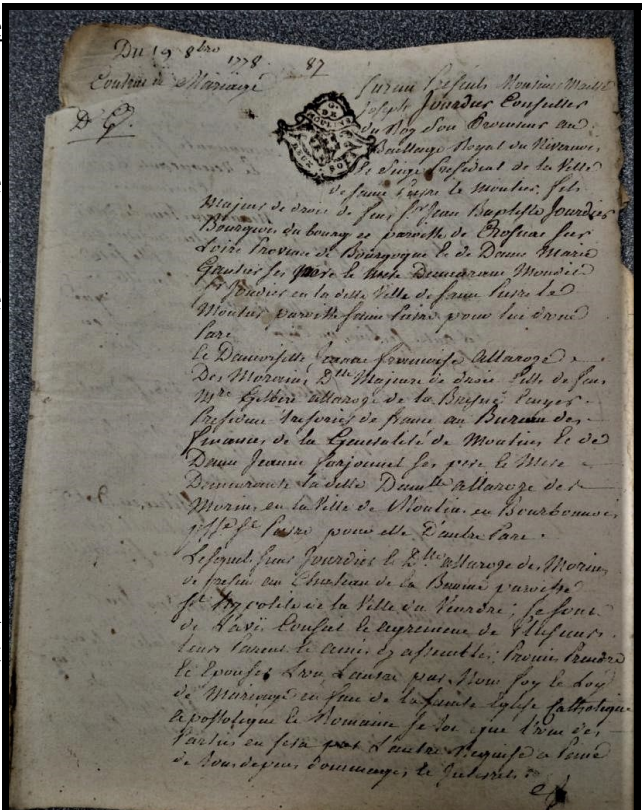 Du 19 8bre 1778. 87
Contrat de Mariage
D. G.
furent Presents Monsieur Maitre
Joseph Jourdier Conseiller
du Roy Son Procureur au
Bailliage Royal du Nivernois
et Siege Presidial de la Ville
de Saint Pierre le Moutier, fils
Majeur de droit de feu Sr Jean Baptiste Jourdier
Bourgeois du bourg et paroisse de Cronat sur
Loire Province de Bourgogne et de Dame Marie
Gautier ses pere et mere Demeurant Mondit
Sr Jourdier en la ditte Ville de Saint Pierre le
Moutier paroisse Saint Pierre pour lui d'une
Part
Et Demoiselle Jeanne françoise allaroze
Des Morins Dlle Majeure de droit fille de feu
Mre Gilbert allaroze de la Ecuyer
President Tresorier de france au Bureau des
finances de la Generalité de Moulins et de
Dame Jeanne farjonnel ses pere et Mere
Demeurante la ditte Demlle allaroze des
Morins en la Ville de Moulins en Bourbonnois
psse St Pierre pour elle D'autre Part.
Lesquels sieur Jourdier et Dlle allaroze des Morins
de present au Chateau de la paroisse
St hypolite de la Ville du Veurdre; se sont
de L'avis Conseil et agrement de Plusieurs
leurs Parens et amis cy assemblés; Promis Prendre
et Epouser L'un Lautre par Nom foy et Loy
de Mariage en face de la sainte Eglise Catholique
apostolique et Romaine si tot que l'une des
Parties en sera par L'autre Requise a Peine
de tous depens dommages et Interets: